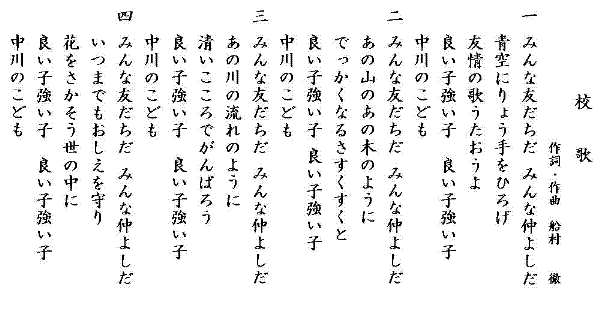 校歌
作詞・作曲 船村 徹
一 みんな友だちだ みんな仲よしだ
青空にりょう手をひろげ
友情の歌うたおうよ
良い子強い子 良い子強い子
中川のこども
二 みんな友だちだ みんな仲よしだ
あの山のあの木のように
でっかくなるさすくすくと
良い子強い子 良い子強い子
中川のこども
三 みんな友だちだ みんな仲よしだ
あの川の流れのように
清いこころでがんばろう
良い子強い子 良い子強い子
中川のこども
四 みんな友だちだ みんな仲よしだ
いつまでもおしえを守り
花をさかそう世の中に
良い子強い子 良い子強い子
中川のこども